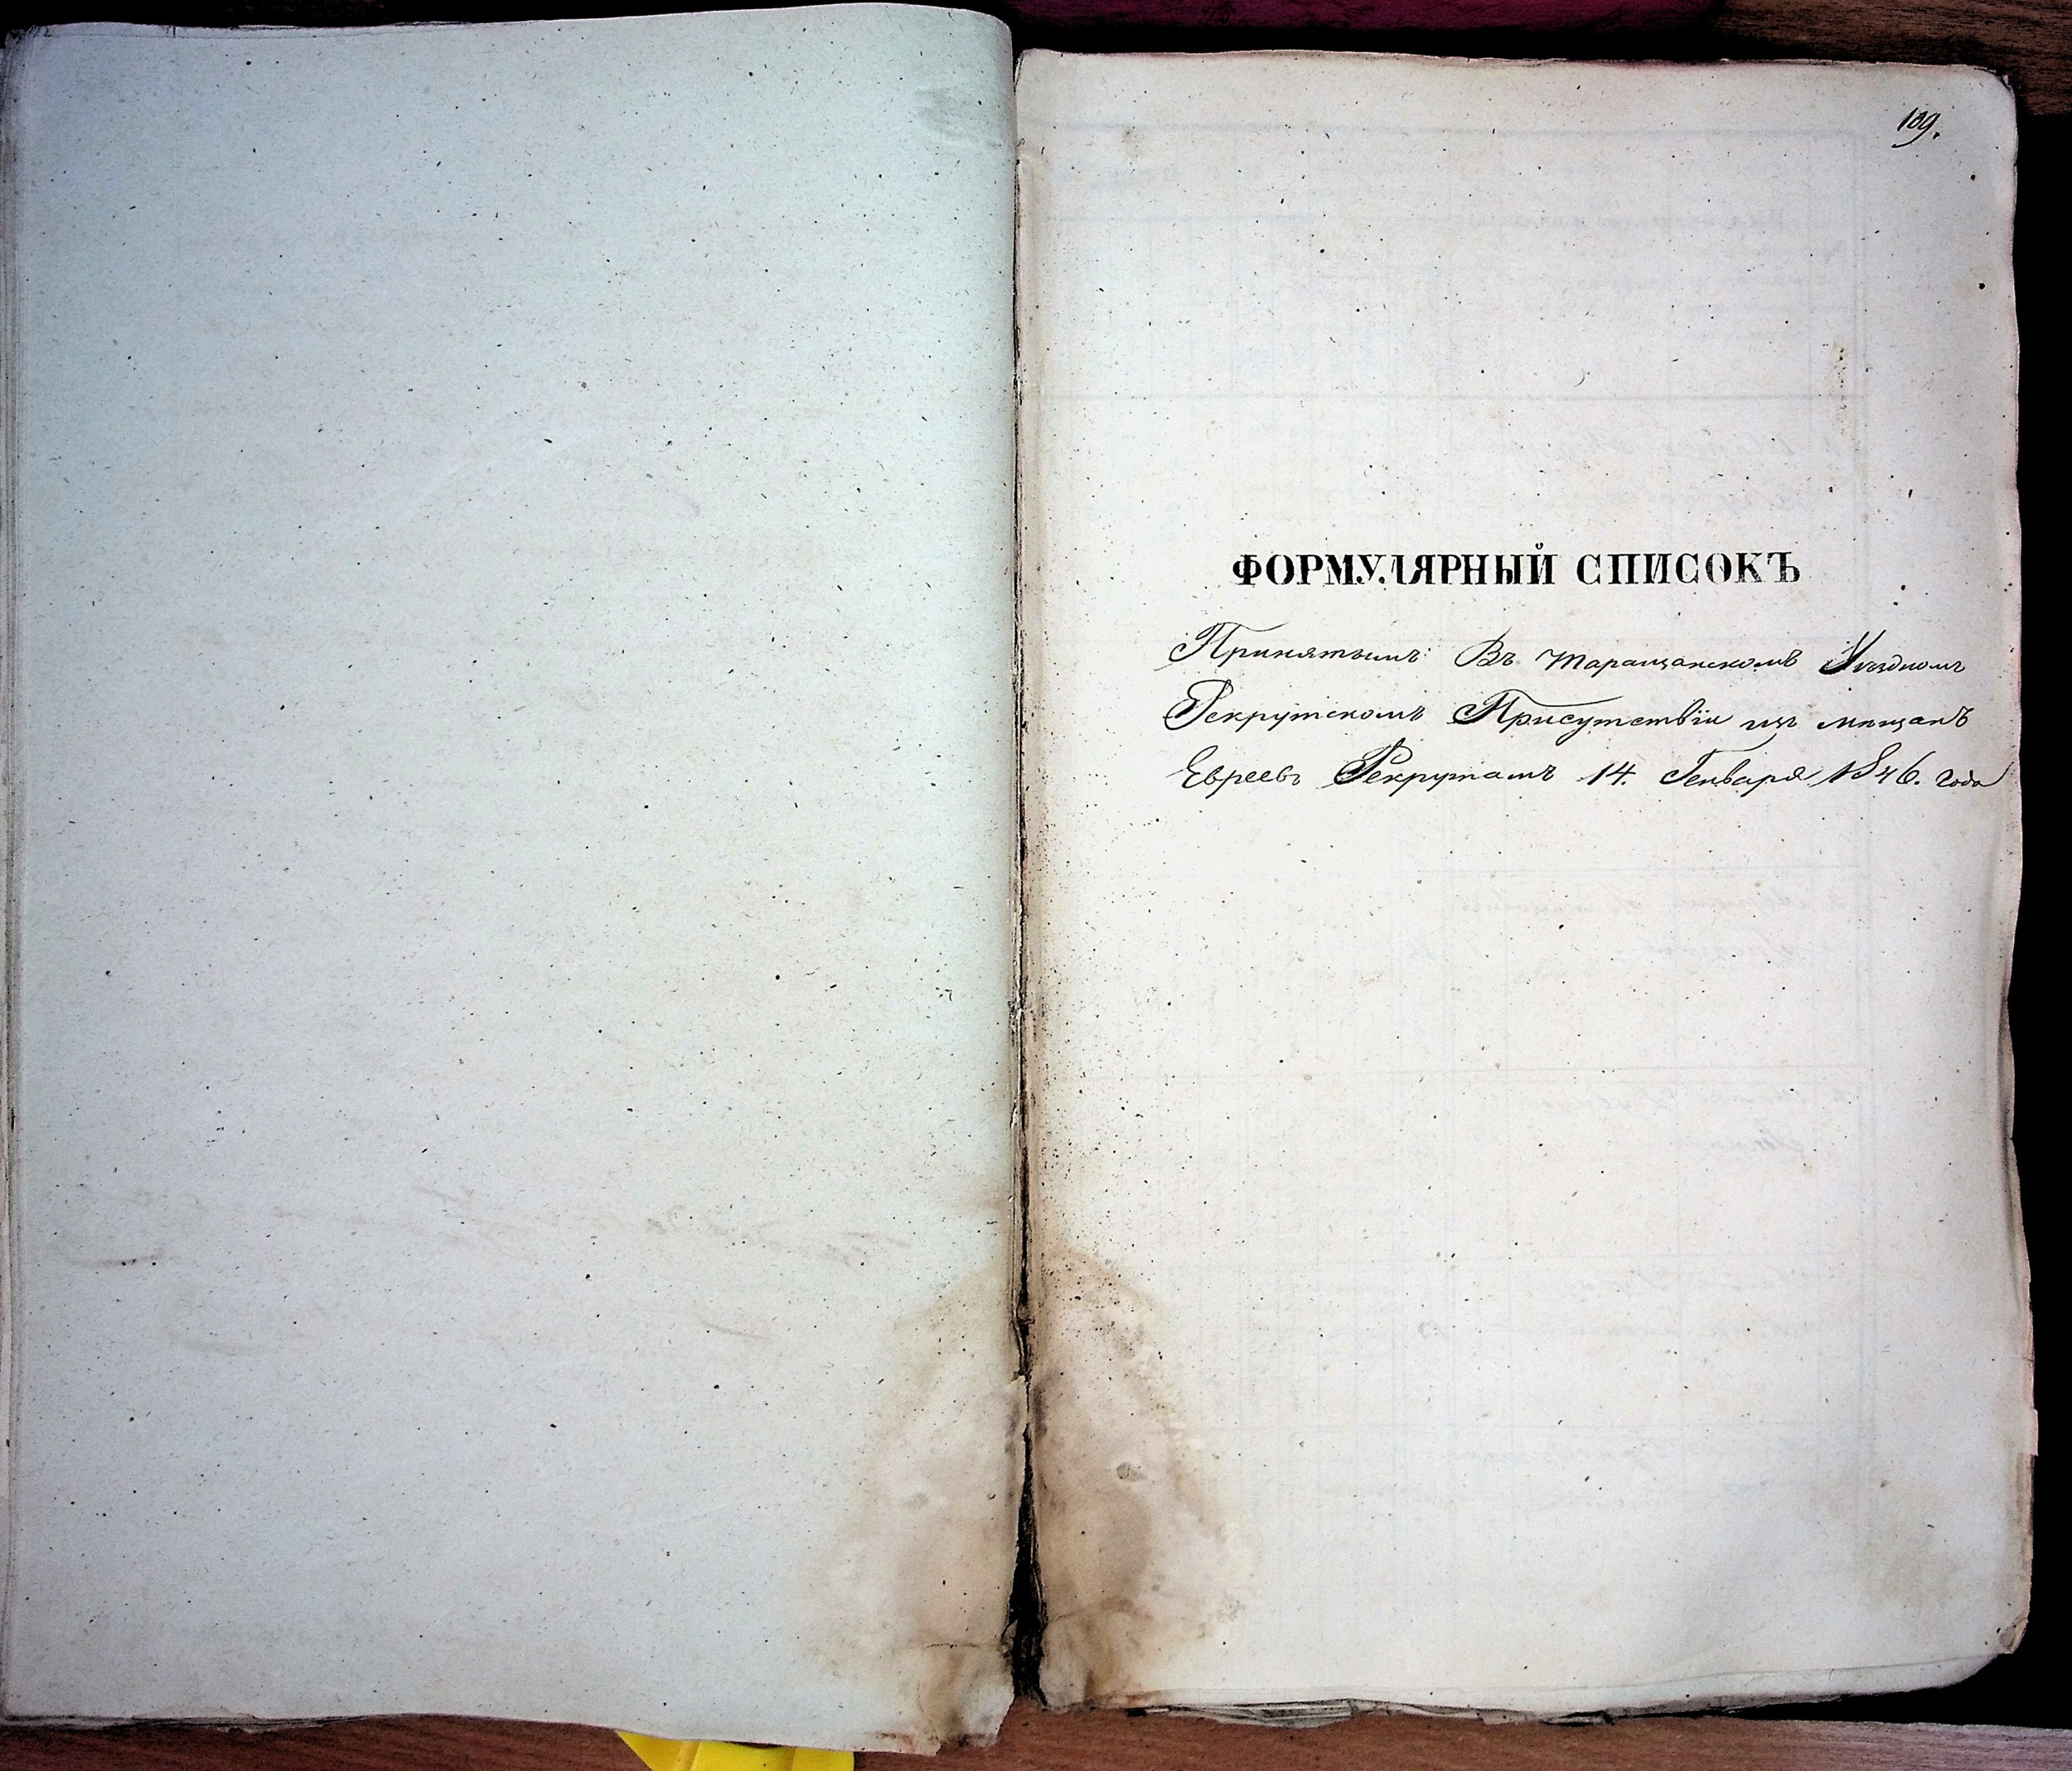 109.
ФОРМУЛЯРНЫЙ СПИСОКЪ
Принятымъ Въ таращанскомъ Уѣздномъ
Рекрутскомъ Присутствіи изъ мѣщанъ
Евреевъ Рекрутамъ 14. Генваря 1846. года